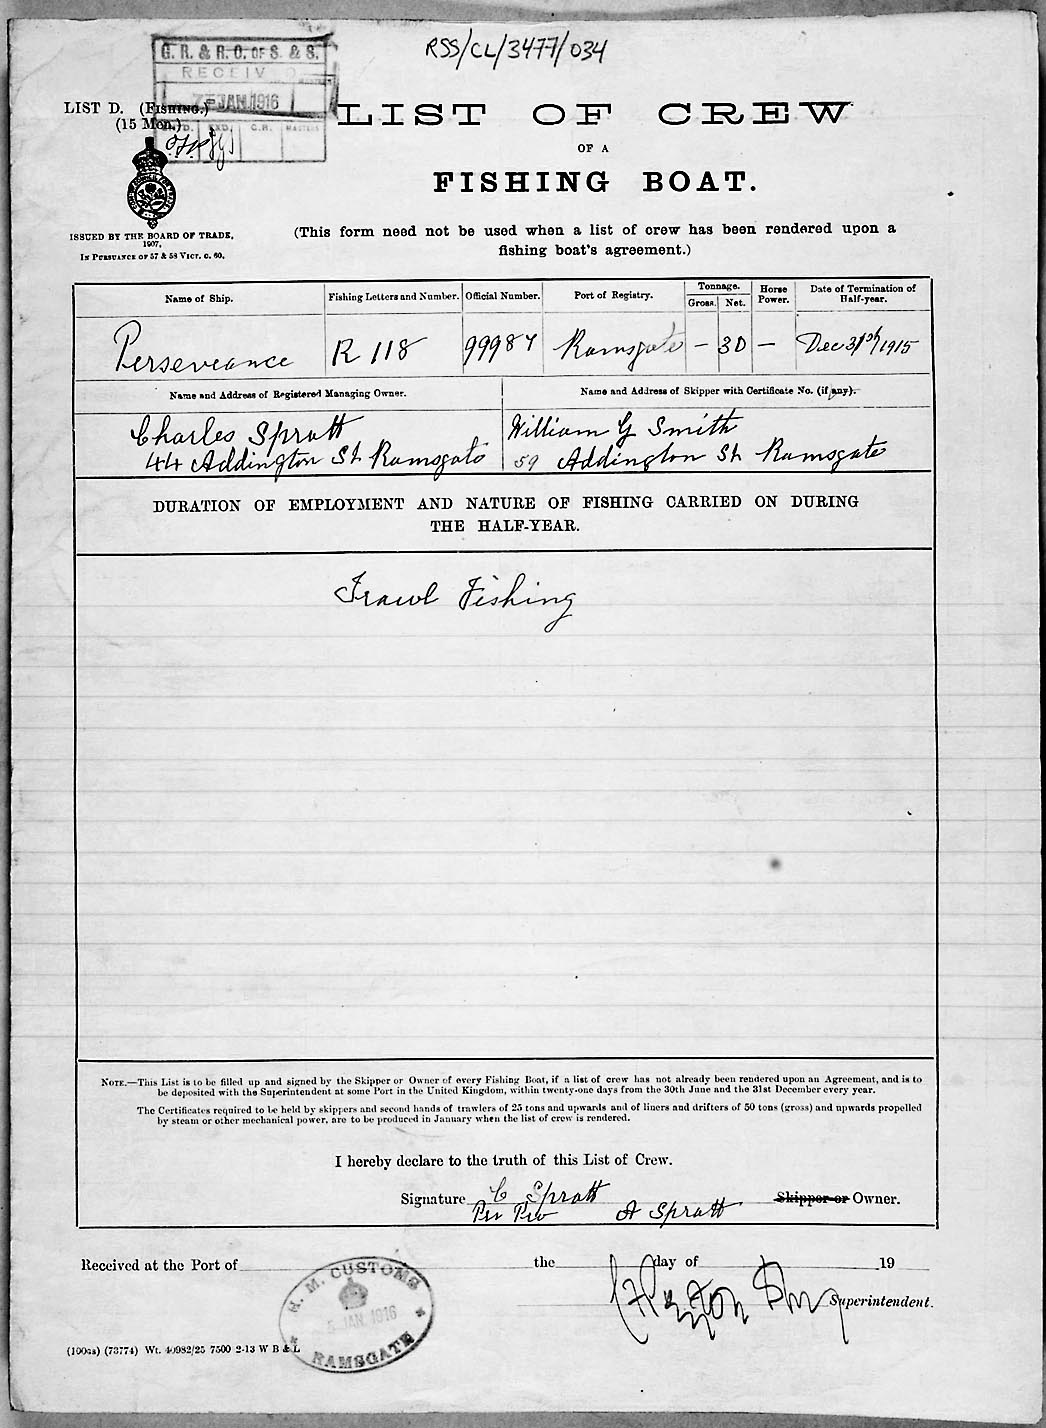 RSS/CL/3477/034
G. R. & R. O. OF S. & S.
RECEIV D
JAN. 1916
C.R. MASTERS
LIST D. (FISHING.)
(15 Mon.)
LIST OF CREW
OF A
FISHING BOAT.
ISSUED BY THE BOARD OF TRADE,
1907,
IN PURSUANCE OF 57 & 58 VICT. C. 60.
(This form need not be used when a list of crew has been rendered upon a
fishing boat's agreement.)
Name of Ship. Fishing Letters and Number. Official Number. Port of Registry. Tonnage. Gross. Net. Horse Power. Date of Termination of Half-year.
Perseverance R 118 99987 Ramsgate – 30 – Dec 31st/1915
Name and Address of Registered Managing Owner. Name and Address of Skipper with Certificate No. (if any).
Charles Spratt William G Smith
44 Addington St Ramsgate 59 Addington St Ramsgate
DURATION OF EMPLOYMENT AND NATURE OF FISHING CARRIED ON DURING
THE HALF-YEAR.
Trawl Fishing
NOTE.—This List is to be filled up and signed by the Skipper or Owner of every Fishing Boat, if a list of crew has not already been rendered upon an Agreement, and is to
be deposited with the Superintendent at some Port in the United Kingdom, within twenty-one days from the 30th June and the 31st December every year.
The Certificates required to be held by skippers and second hands of trawlers of 25 tons and upwards and of liners and drifters of 50 tons (gross) and upwards propelled
by steam or other mechanical power, are to be produced in January when the list of crew is rendered.
I hereby declare to the truth of this List of Crew.
Signature C Spratt Skipper or Owner.
Per Pro A Spratt
Received at the Port of the day of 19
Superintendent.
H. M. CUSTOMS
5 JAN. 1916
RAMSGATE
(190GS) (73774) Wt. 40982/25 7500 2-13 W B & L